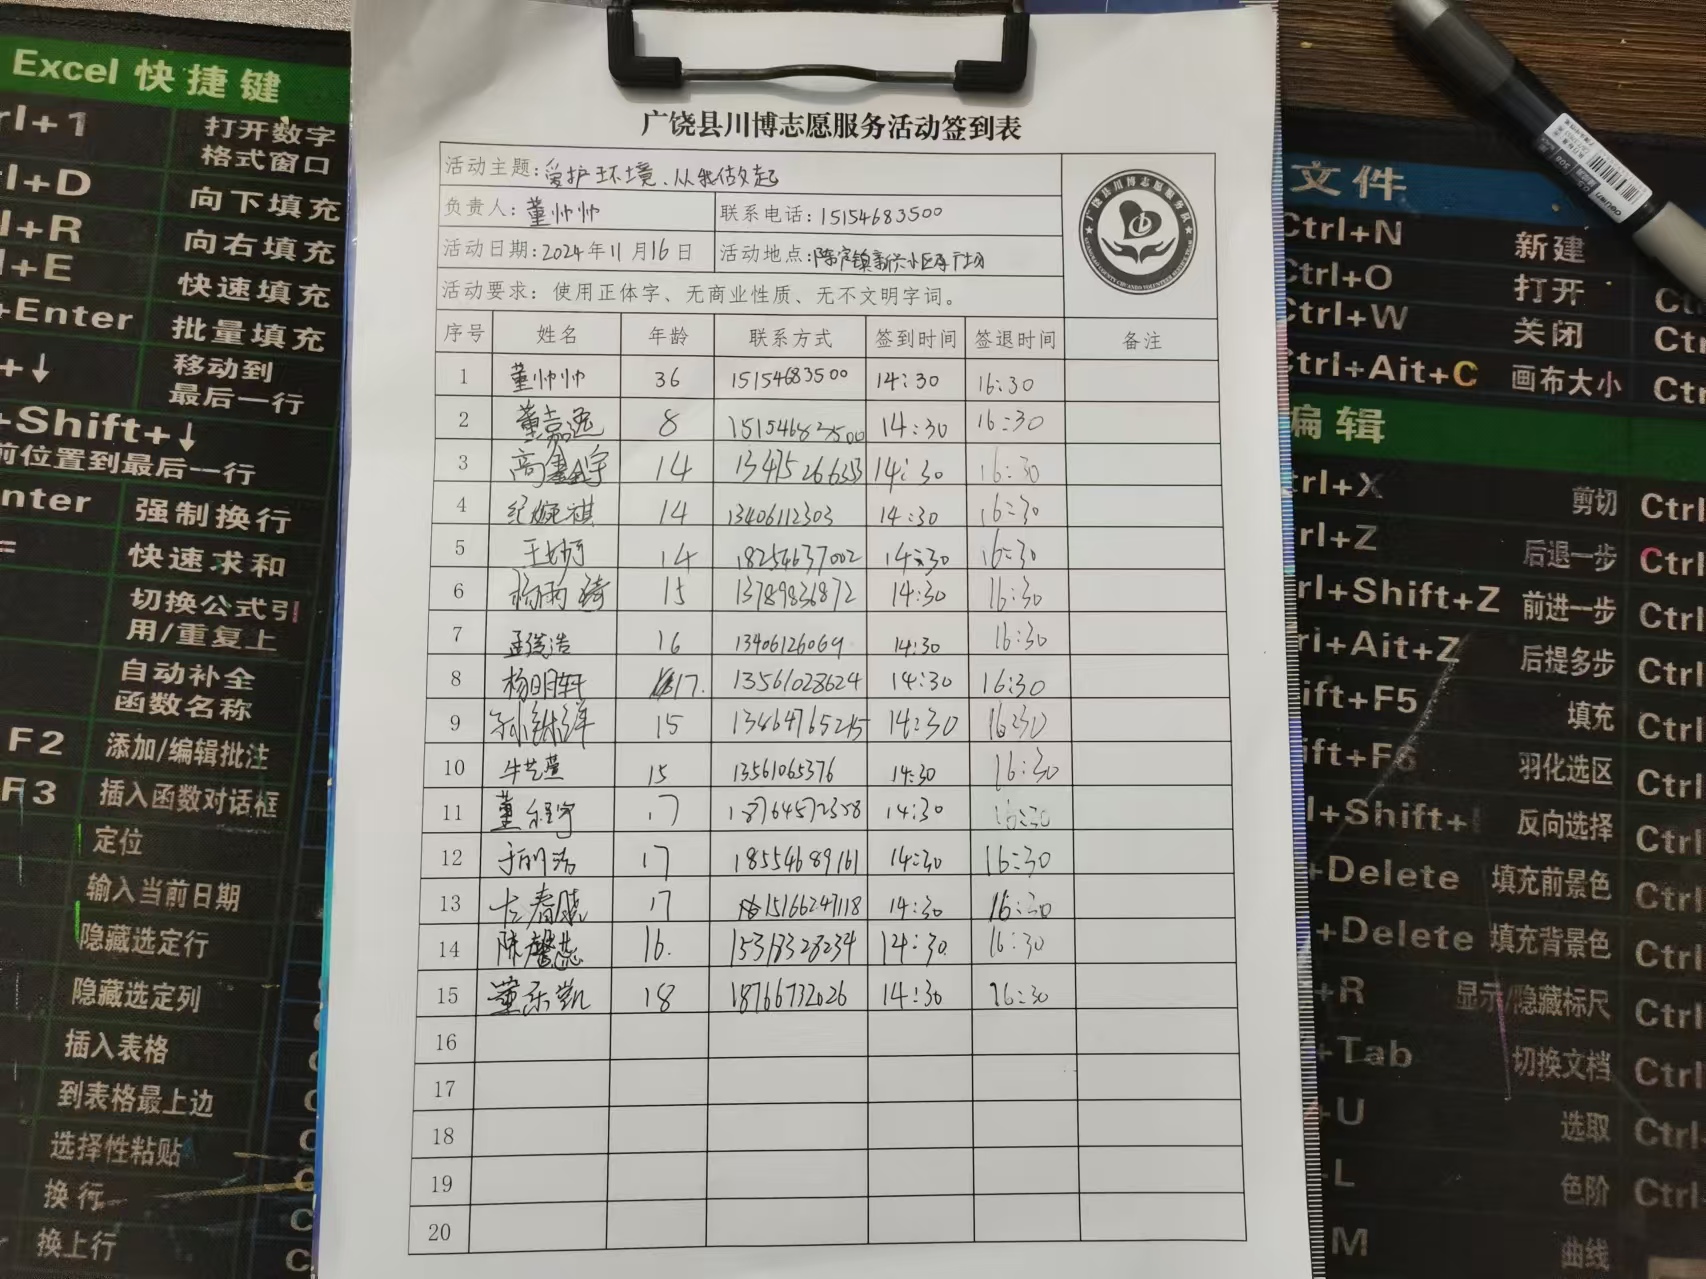 Excel 快捷键
rl+1 打开数字
格式窗口
l+D 向下填充
l+R 向右填充
l+E 快速填充
+Enter 批量填充
+↓ 移动到
最后一行
+Shift+↓
前位置到最后一行
nter 强制换行
= 快速求和
切换公式引
用/重复上
自动补全
函数名称
F2 添加/编辑批注
F3 插入函数对话框
定位
输入当前日期
隐藏选定行
隐藏选定列
插入表格
到表格最上边
选择性粘贴
换行
换上行
广饶县川博志愿服务活动签到表
活动主题:爱护环境、从我做起
负责人:董帅帅 联系电话:15154683500
活动日期:2024年11月16日 活动地点:陈官镇
活动要求: 使用正体字、无商业性质、无不文明字词。
广饶县川博志愿服务队
序号 姓名 年龄 联系方式 签到时间 签退时间 备注
1 董帅帅 36 15154683500 14:30 16:30
2 董嘉逸 8 15154683500 14:30 16:30
3 高鑫宇 14 14:30 16:30
4 纪婉祺 14 13406112303 14:30 16:30
5 14 18254637002 14:30 16:30
6 杨雨琦 15 13789836872 14:30 16:30
7 孟浩 16 13406126069 14:30 16:30
8 杨明轩 17. 13561028624 14:30 16:30
9 15 13464765245 14:30 16:30
10 牛艺萱 15 13561065376 14:30 16:30
11 董程宇 17 18764572358 14:30 16:30
12 17 18554689161 14:30 16:30
13 春晓 17 15166247118 14:30 16:30
14 陈馨蕊 16. 15318328234 14:30 16:30
15 董乐凯 18 18766732026 14:30 16:30
16
17
18
19
20
文件
Ctrl+N 新建
Ctrl+O 打开
Ctrl+W 关闭
Ctrl+Ait+C 画布大小
编辑
rl+X 剪切 Ctrl
rl+Z 后退一步 Ctrl
rl+Shift+Z 前进一步 Ctrl
rl+Ait+Z 后提多步 Ctrl
ift+F5 填充 Ctrl
ift+F6 羽化选区 Ctrl
l+Shift+I 反向选择 Ctrl
+Delete 填充前景色 Ctrl
+Delete 填充背景色 Ctrl
+R 显示/隐藏标尺 Ctrl
+Tab 切换文档 Ctrl
+U 选取 Ctrl
L 色阶 Ctrl
M 曲线